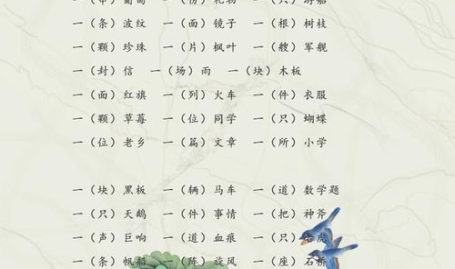 一（条）波纹 一（面）镜子 一（根）树枝
一（颗）珍珠 一（片）枫叶 一（艘）军舰
一（封）信 一（场）雨 一（块）木板
一（面）红旗 一（列）火车 一（件）衣服
一（颗）草莓 一（位）同学 一（只）蝴蝶
一（位）老乡 一（篇）文章 一（所）小学
一（块）黑板 一（辆）马车 一（道）数学题
一（只）天鹅 一（件）事情 一（把）神斧
一（声）巨响 一（道）血痕 一（只）
一（条）帆船 （阵）旋风 一（座）石桥